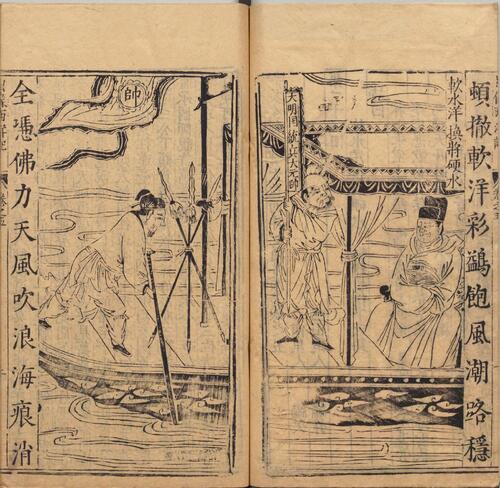 頓撤軟洋彩鷁飽風潮路穩
軟水洋換將硬水
大明國統兵大元帥
帥
全憑佛力天風吹浪海痕消
卷之五